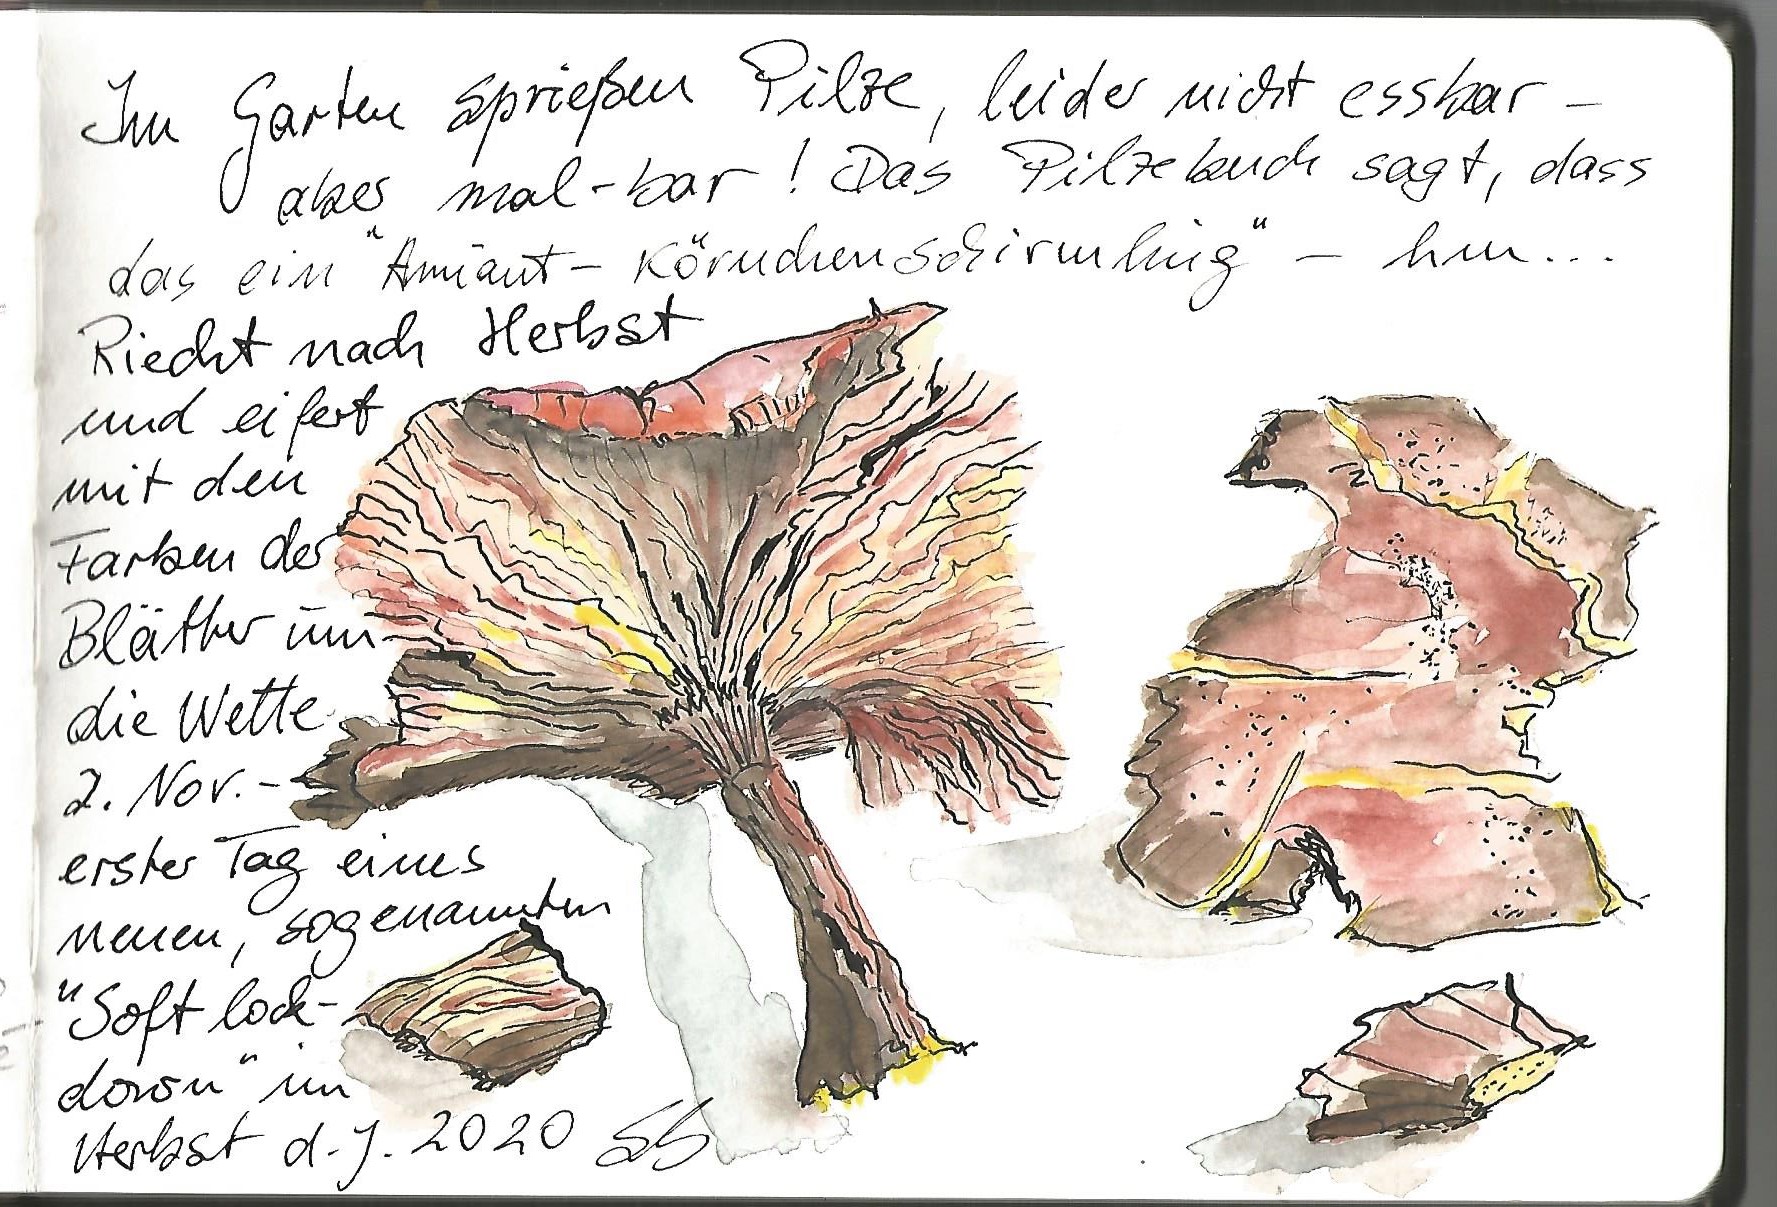 Im Garten sprießen Pilze, leider nicht essbar –
aber mal-bar! Das Pilzebuch sagt, dass
das ein "Amiant-Körnchenschirmling" – hm...
Riecht nach Herbst
und eifert
mit den
Farben der
Blätter um
die Wette
2. Nov. -
erster Tag eines
neuen, sogenannten
"Soft lock-
down" im
Herbst d. J. 2020